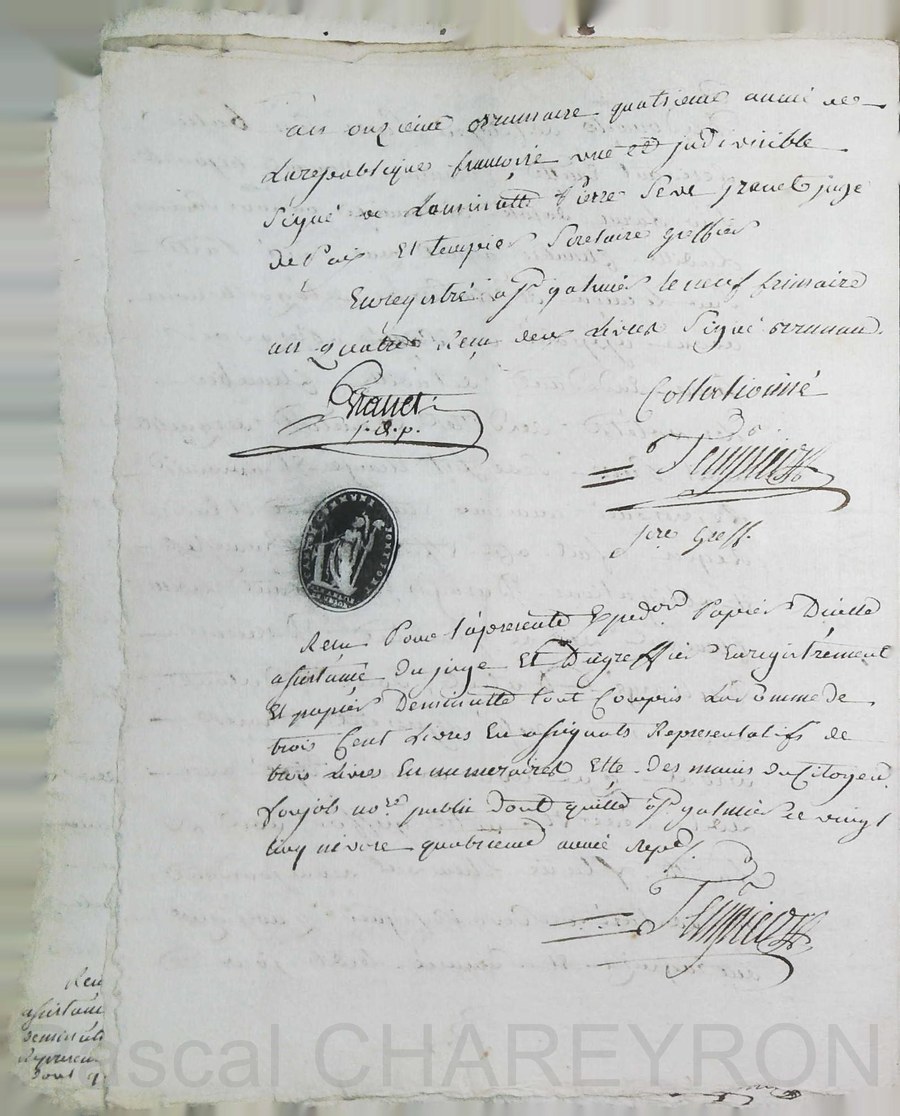 an onzieme brumaire quatrieme année de
La republique francoise une et jndivisible
Signé de Laminutte Pierre Seve granet juge
de Paix Et tempier Secretaire greffier
Enregistré a St galmier le neuf frimaire
an quatre Recu deux Livres Signé
Granet
j. d. p.
Collationné
Tempier
greff.
COMMUNE
Recu Pour l'apresente Expedon Papier Dicelle
assistance Du juge Et Dugreffier Enregistrement
Et papier Deminutte tout Compris La Somme de
trois Cent Livres En assignats Representatifs de
trois Livres En numeraires Ette Des mains du Citoyen
nore public Dont quitte a St galmier ce vingt
cinq nivose quatrieme année Repe
Tempier
Recu
assistance
Deminutte
Represen
Dont q
Pascal CHAREYRON